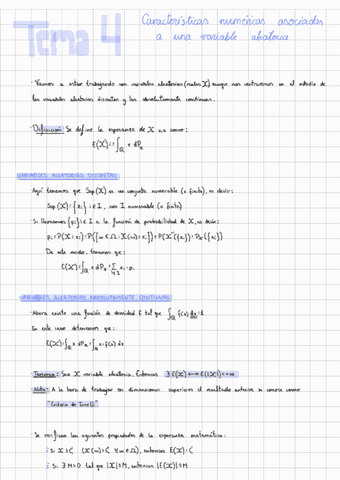 Tema 4
Características numéricas asociadas
a una variable aleatoria
· Vamos a estar trabajando con variables aleatorias (reales X) aunque nos centraremos en el estudio de
las variables aleatorias discretas y las absolutamente continuas.
· Definición: Se define la esperanza de X v.a. como:
E(X) := ∫_ℝ x dP_x
VARIABLES ALEATORIAS DISCRETAS
Aquí tenemos que Sop(X) es un conjunto numerable (o finito), es decir:
Sop(X) = {x_i : i ∈ I, con I numerable (o finito)
Si llamamos {p_i : i ∈ I a la función de probabilidad de X, es decir:
p_i = P(X = x_i) = P({w ∈ Ω : X(w) = x_i}) = P(X^{-1}{x_i}) = P_x({x_i})
De este modo, tenemos que:
E(X) = ∫_ℝ x dP_x = ∑_{i∈I} x_i · p_i
VARIABLES ALEATORIAS ABSOLUTAMENTE CONTINUAS
· Ahora existe una función de densidad f tal que ∫_ℝ f(x) dx = 1
En este caso obtenemos que:
E(X) = ∫_ℝ x dP_x = ∫_ℝ x · f(x) dx
· Teorema: Sea X variable aleatoria. Entonces ∃ E(X) ⟷ E(|X|) < +∞
· Nota: A la hora de trabajar en dimensiones superiores el resultado anterior se conoce como
"Criterio de Tonelli"
· Se verifican las siguientes propiedades de la esperanza matemática:
Si X ≥ C (X(w) ≥ C ∀ w ∈ Ω), entonces E(X) ≥ C
Si ∃ M > 0 tal que |X| ≤ M, entonces |E(X)| ≤ M